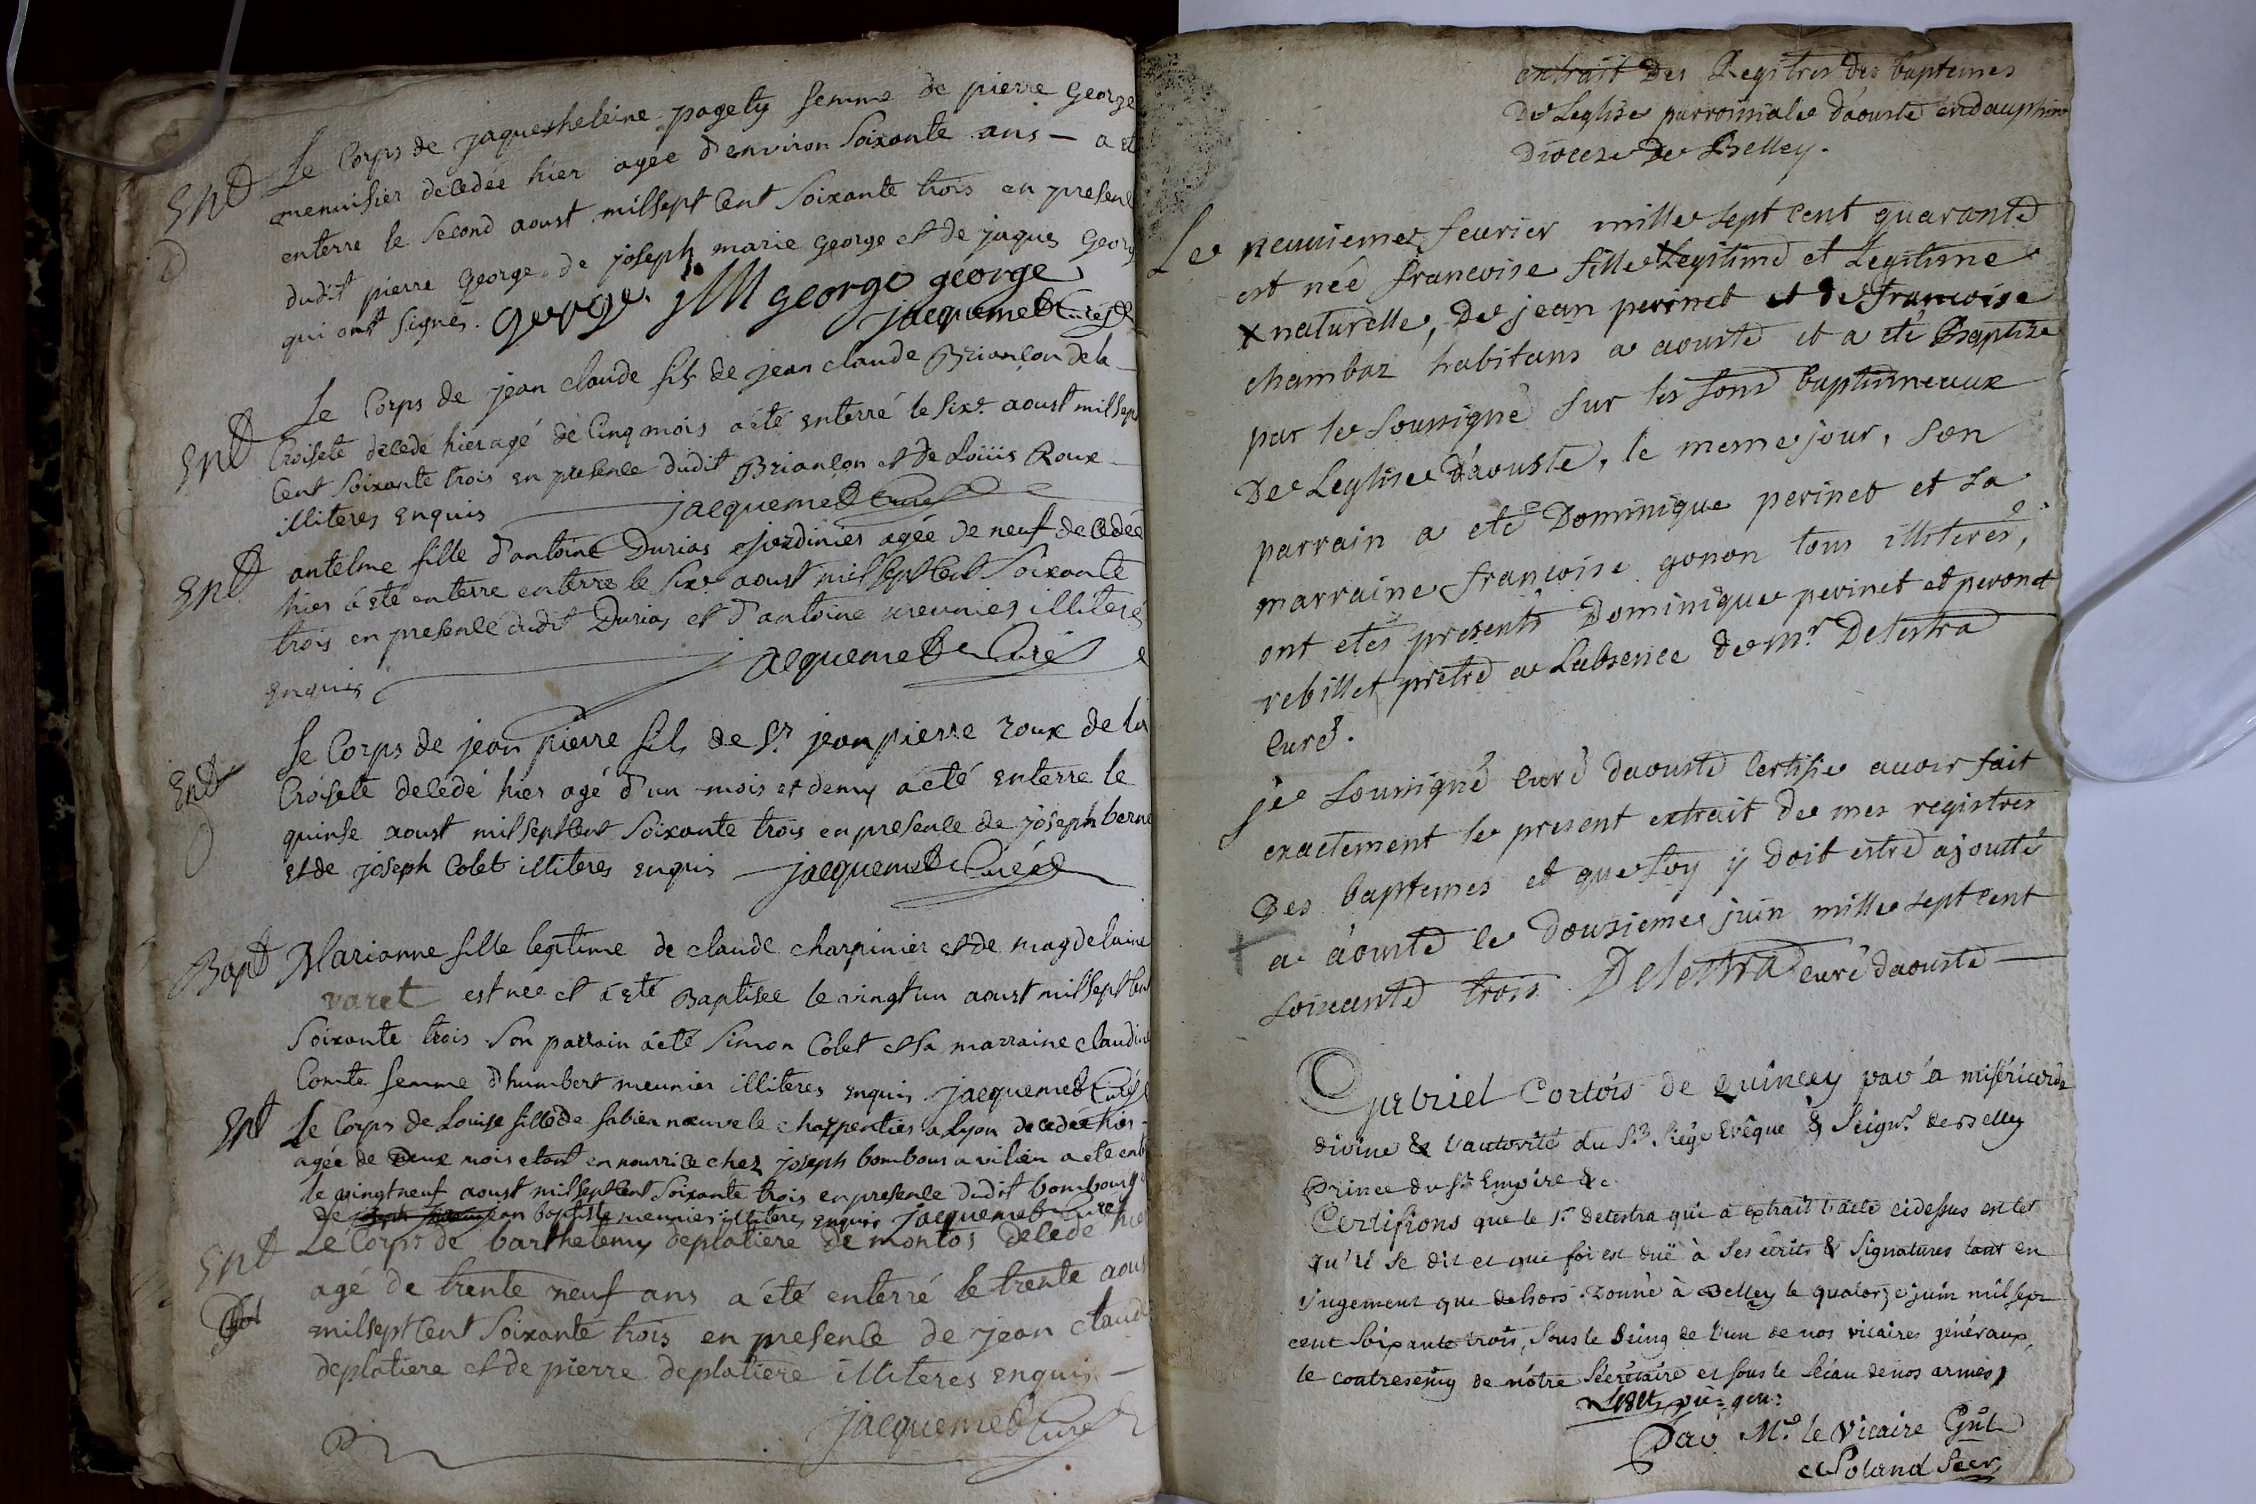 Ent
Le Corps de jaquesheleine pagety femme de pierre George
menuisier decedée hier agée d'environ Soixante ans — a et
enterre le second aoust milsept Cent Soixante trois en presenc
dudit pierre George de joseph marie George et de jaques Georg
qui ont signes. george. JM george george
jacquemet Curé
Ent
Le Corps de jean claude fils de jean claude Briançon de la
Croisete decedé hier agé de Cinq mois a été enterré le six.e aoust milsept
Cent Soixante trois en presence dudit Briançon et de Loüis Roux
illiteres enquis jacquemet Curé
Ent
antelme fille d'antoine Durias jardinier agée de neuf decedée
hier a eté enterre enterre le six.e aoust milseptCent Soixante
trois en presence dudit Durias et d'antoine meunier illiteré
enquis jacquemet Curé
Ent
Le Corps de jean pierre fils de Sr. jean pierre roux de la
Croisete decedé hier agé d'un mois et demy a eté enterre le
quinse aoust milseptCent Soixante trois en presence de joseph berne
et de joseph Colet illiteres enquis jacquemet Curé
Bapt
Marianne fille legitime de claude charpinier et de magdelaine
varet est nee et a eté Baptisee le vingt un aoust milsept Cent
Soixante trois Son parrain a eté Simon Colet et sa marraine claudine
Comte femme d'humbert meunier illiteres enquis jacquemet Curé
Ent
Le Corps de Louise fille de fabien nouvele charpentier a Lyon decedée hier
agée de Deux mois etant en nourrice chez joseph bombour a vilieu a eté ente
le vingtneuf aoust milseptCent Soixante trois en presence dudit bombour
de jean baptiste meunier illiteres enquis jacquemet Curé
Ent
Le Corps de barthelemy deplatiere de montos decedé hier
agé de trente neuf ans a été enterré le trente aoust
milsept Cent Soixante trois en presence de jean claude
deplatiere et de pierre deplatiere illiteres enquis —
jacquemet Curé
extrait Des Registres des baptemes
De Leglise parroissiale d'aouste en dauphiné
Dioceze de Belley.
Le neuvieme fevrier mille sept cent quarante
est neé francoise fille Legitime et Legitime
x naturelle, De jean perinet et de francoise
chambaz habitans a aouste et a eté Baptise
par le soussigné sur les fond baptismeaux
De Leglise d'aouste, le meme jour, son
parrain a eté Dominique perinet et sa
marraine francoise gonon tous illiterés,
ont etés présents Dominique perinet et peronet
rebillet prêtre a Labsence de Mr. Delestra
curé.
je soussigné curé daouste certifie avoir fait
exactement le present extrait de mes registres
Des baptemes et que foy y doit estre ajouté
a aouste le dousieme juin mille sept cent
soixante trois Delestra curé daouste —
Gabriel Cortois de Quincey par la miséricorde
divine & l'autorité du St. Siége Evêque & Seignr. de Belley
Prince du St. Empire &c.
Certifions que le Sr. Delestra qui a extrait l'acte cidessus est tel
qu'il se dit et que foi est duë à ses écrits & signatures tant en
jugement que dehors. Donné à Belley le quatorze juin mil sept
cent soixante trois, sous le seing de l'un de nos vicaires généraux,
le contreseing de nôtre Sécrétaire et sous le sceau de nos armes,
vic: gen:
Par Mr. le Vicaire Gnl
Poland Secr.